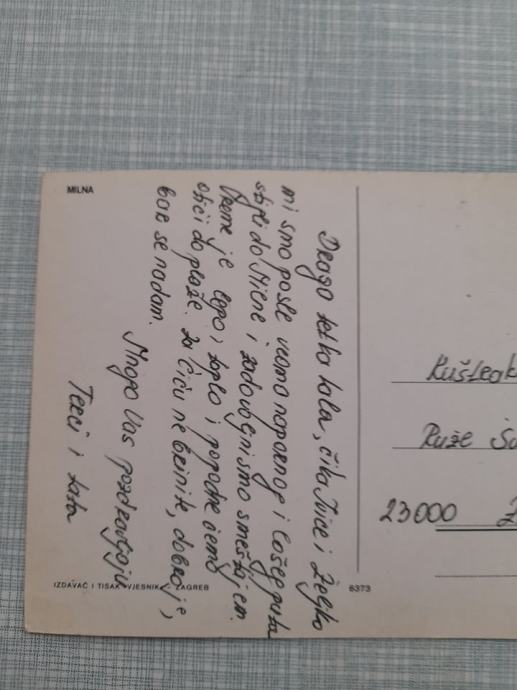 MILNA
Drago tetka Lola, čika Ivice i Željko
mi smo posle veoma napornog i lošeg puta
stigli do Milne i zadovoljni smo smeštajem.
Vreme je lepo, toplo i popodne ćemo
otići do plaže. Za Ćiću ne brinite, dobro je,
bar se nadam.
Mnogo Vas pozdravljaju
i tata
IZDAVAČ I TISAK VJESNIK ZAGREB
6373
Ruže
23000